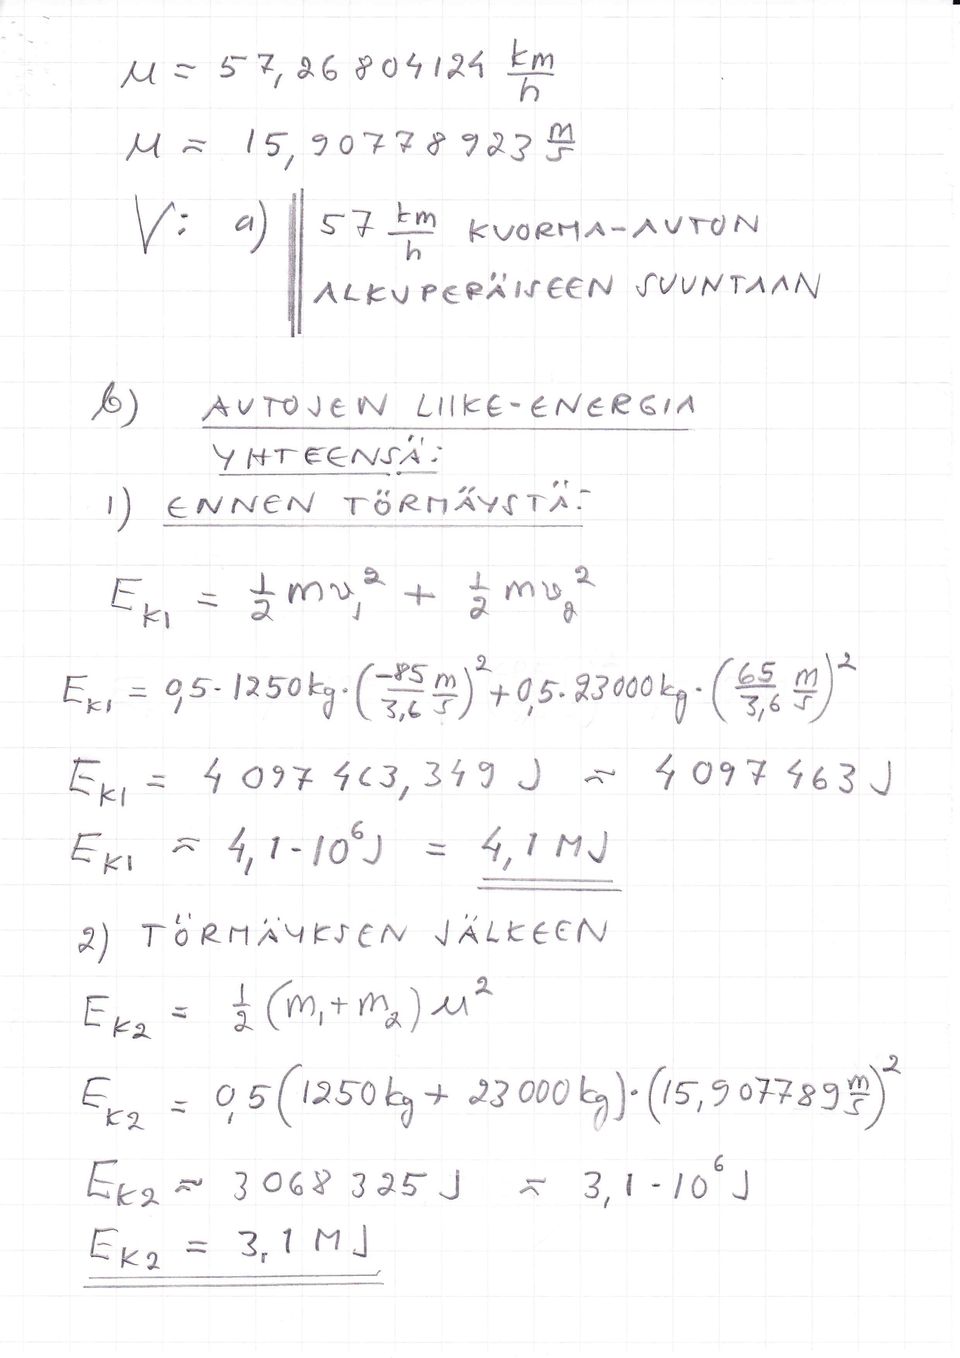 u = 57,26804124 km/h
u ≈ 15,90778923 m/s
V: a) 57 km/h KUORMA-AUTON
ALKUPERÄISEEN SUUNTAAN
b) AUTOJEN LIIKE-ENERGIA
YHTEENSÄ:
1) ENNEN TÖRMÄYSTÄ:
E_K1 = ½ mv₁² + ½ mv₂²
E_K1 = 0,5·1250kg·(-85/3,6 m/s)² + 0,5·23000kg·(65/3,6 m/s)²
E_K1 = 4 097 463,349 J ≈ 4 097 463 J
E_K1 ≈ 4,1·10⁶J = 4,1 MJ
2) TÖRMÄYKSEN JÄLKEEN
E_K2 = ½ (m₁+m₂)u²
E_K2 = 0,5(1250kg + 23000kg)·(15,907789 m/s)²
E_K2 ≈ 3 068 325 J ≈ 3,1·10⁶J
E_K2 = 3,1 MJ